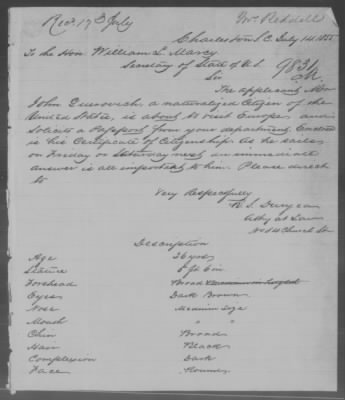 Rec. 17th July
Mr. Reddall
Charleston S.C. July 14. 1855
To the Hon. William L. Marcy
Secretary of State of U.S.
983
Sir
The applicant Mr.
John, a naturalized Citizen of the
United States, is about to visit Europe, and
Solicits a Passport from your department. Enclosed
is his Certificate of Citizenship. As he sails
on Friday or Saturday next an immediate
answer is all important to him. Please direct
to
Very Respectfully
R. S. Duryea
Atty at Law
No 54 Church St
Description
Age 26 yrs
Stature 5 ft 6 in
Forehead Broad
Eyes Dark Brown
Nose Medium Size
Mouth " "
Chin Broad
Hair Black
Complexion Dark
Face Round